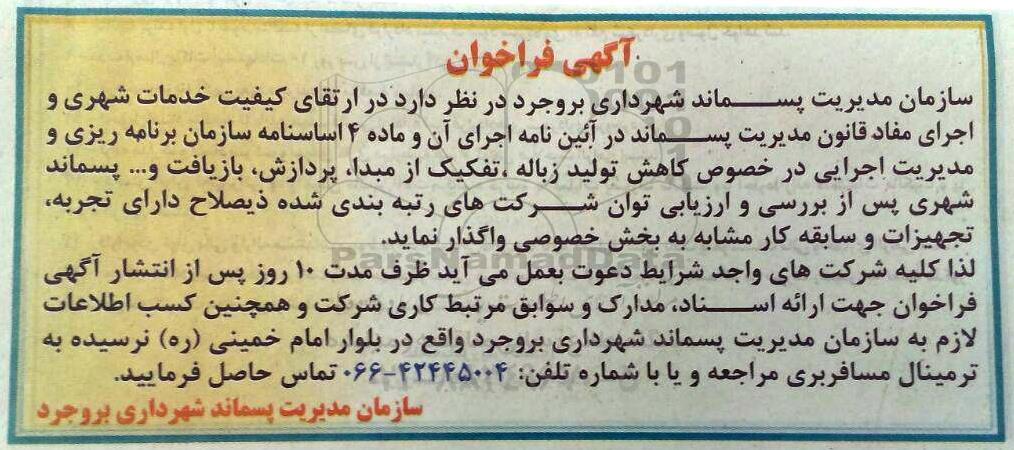 آگهی فراخوان
سازمان مدیریت پسماند شهرداری بروجرد در نظر دارد در ارتقای کیفیت خدمات شهری و
اجرای مفاد قانون مدیریت پسماند در آئین نامه اجرای آن و ماده ۴ اساسنامه سازمان برنامه ریزی و
مدیریت اجرایی در خصوص کاهش تولید زباله ،تفکیک از مبدا، پردازش، بازیافت و... پسماند
شهری پس از بررسی و ارزیابی توان شرکت های رتبه بندی شده ذیصلاح دارای تجربه،
تجهیزات و سابقه کار مشابه به بخش خصوصی واگذار نماید.
لذا کلیه شرکت های واجد شرایط دعوت بعمل می آید ظرف مدت ۱۰ روز پس از انتشار آگهی
فراخوان جهت ارائه اسناد، مدارک و سوابق مرتبط کاری شرکت و همچنین کسب اطلاعات
لازم به سازمان مدیریت پسماند شهرداری بروجرد واقع در بلوار امام خمینی (ره) نرسیده به
ترمینال مسافربری مراجعه و یا با شماره تلفن: ۴۲۴۴۵۰۰۴-۰۶۶ تماس حاصل فرمایید.
سازمان مدیریت پسماند شهرداری بروجرد
ParsNamadData